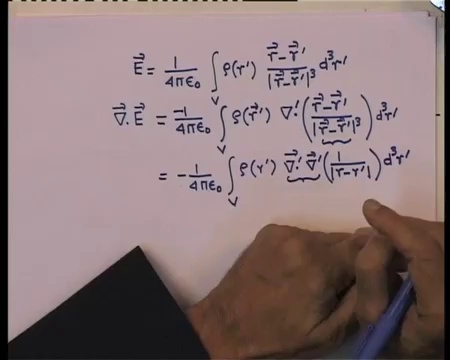 \vec{E} = \frac{1}{4\pi\epsilon_0} \int_V \rho(r') \frac{\vec{r}-\vec{r}'}{|\vec{r}-\vec{r}'|^3} d^3r'
\vec{\nabla}.\vec{E} = \frac{-1}{4\pi\epsilon_0} \int_V \rho(\vec{r}') \nabla'. \left( \frac{\vec{r}-\vec{r}'}{|\vec{r}-\vec{r}'|^3} \right) d^3r'
= -\frac{1}{4\pi\epsilon_0} \int_V \rho(r') \vec{\nabla}'.\vec{\nabla}' \left( \frac{1}{|r-r'|} \right) d^3r'